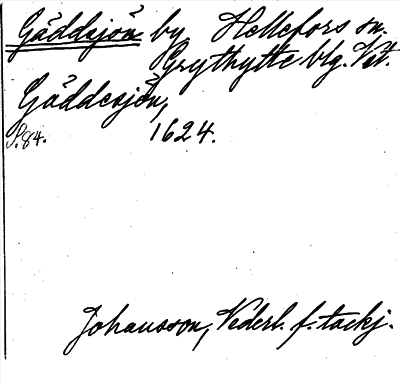 Gäddsjön by Hellefors sn.
Grythytte blg. Vst.
Gäddesjön,
S. 84. 1624.
Johansson, Nederl. f. tackj.